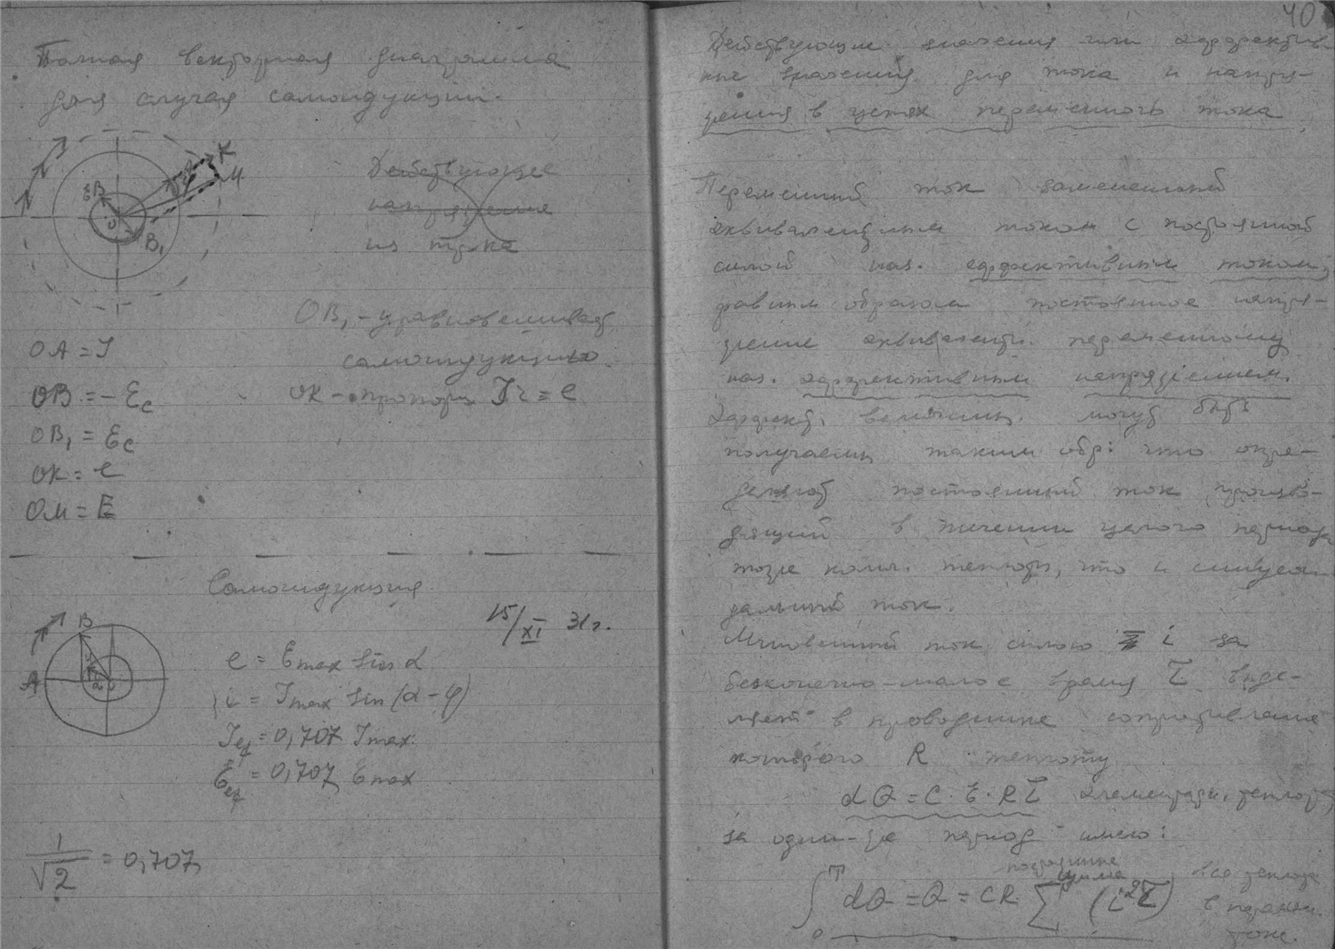 Полная векторная диаграмма
для случая самоиндукции.
Действующее
напряжение
из тока
К
М
В
ЕВ
О
В₁
ОВ₁ - уравновешивает
самоиндукцию.
ОА = J
ОВ = - Ec
ОК - пропорц. Jr = e
ОВ₁ = Ec
ОК = e
ОМ = E
Самоиндукция.
15/XI 31 г.
В
А
e = Emax Sin α
i = Jmax Sin (α - φ)
Jef = 0,707 Jmax.
Eef = 0,707 Emax
1/√2 = 0,707
40
Действующие значения или эффектив-
ные значения для тока и напря-
жения в цепях переменного тока
Переменный ток замененный
эквивалентным током с постоянной
силой наз. эффективным током,
равным образом постоянное напря-
жение эквивалентн. переменному
наз. эффективным напряжением.
Эффект. величины могут быть
получаемы таким обр: что опре-
деляют постоянный ток произво-
дящий в течении целого периода
тоже колич. теплоты, что и синусои-
дальный ток.
Мгновенный ток силою i за
бесконечно-малое время τ выде-
ляет в проводнике сопротивление
которого R теплоту
dQ = C · E · R τ Элементарн. теплота
за один период имею:
∫₀ᵀ dQ = Q = CR Σ (i²τ) вся теплота
в перемен.
токе.